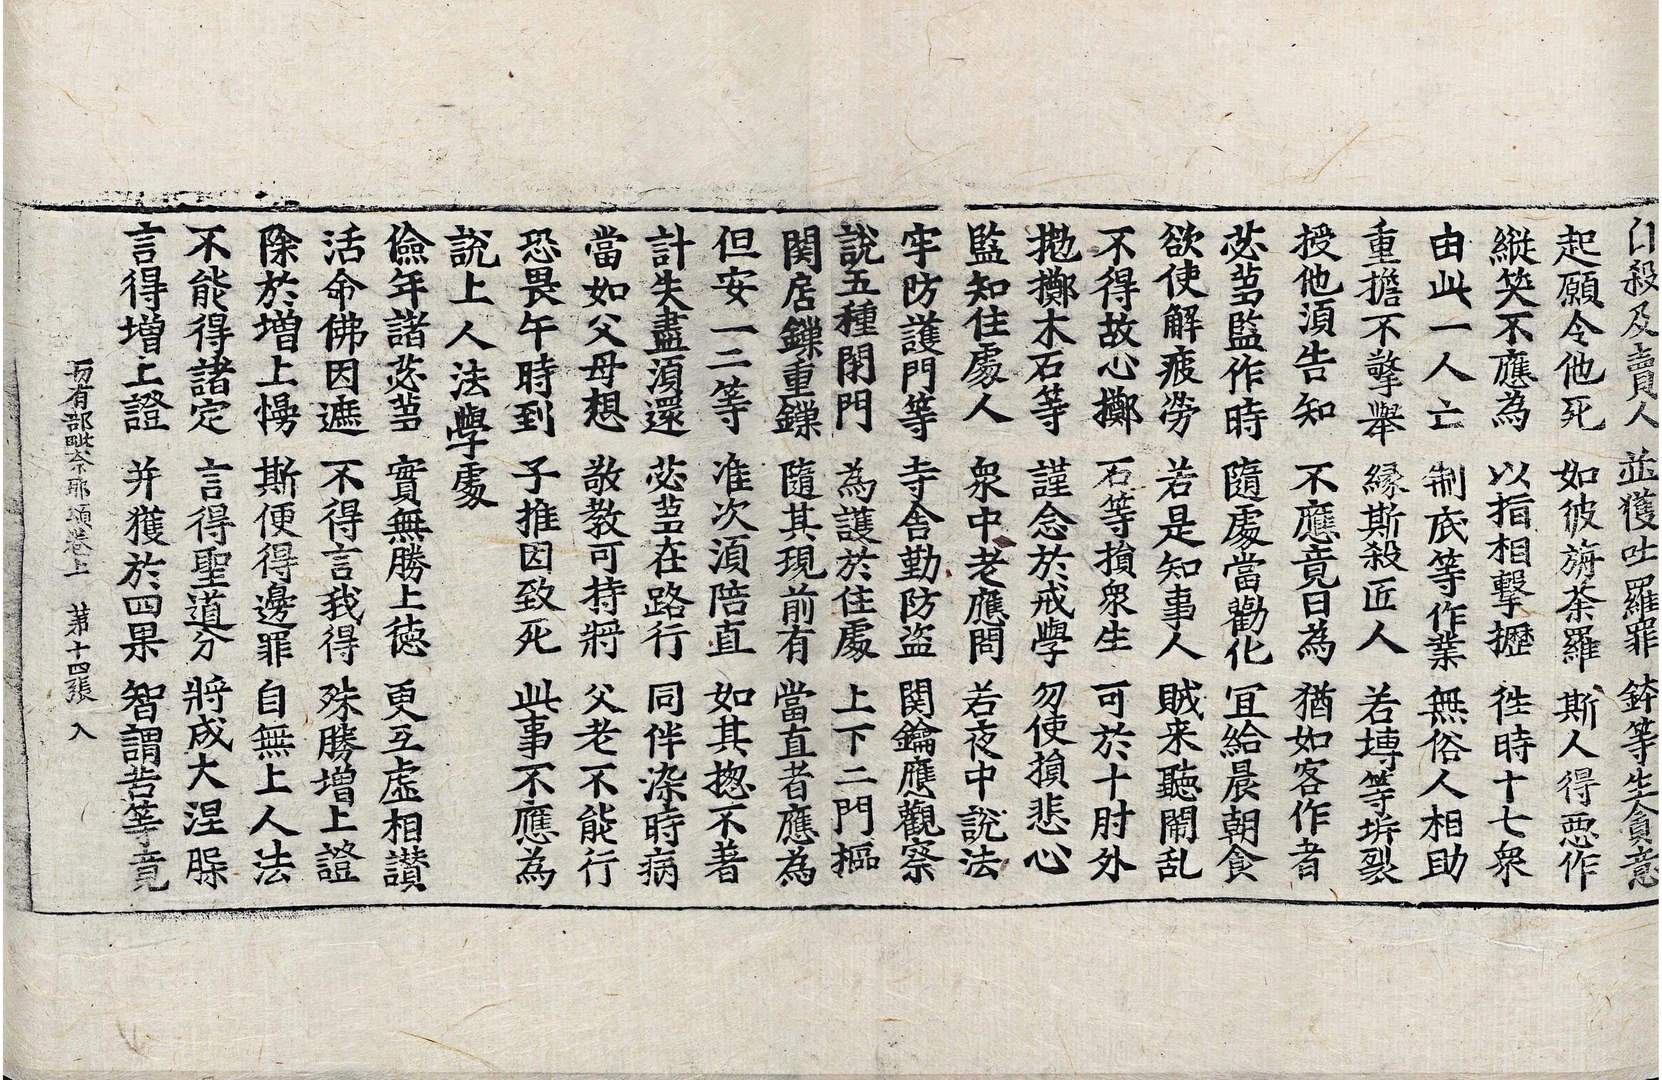 自殺及賣人 並獲吐羅罪 鉢等生貪意
起願令他死 如彼旃荼羅 斯人得惡作
縱笑不應為 以指相擊攊 徃時十七衆
由此一人亡 制底等作業 無俗人相助
重擔不擎舉 縁斯殺匠人 若塼等㘸裂
授他湏告知 不應竟日為 猶如客作者
苾蒭監作時 隨處當勸化 宜給晨朝食
欲使解疲勞 若是知事人 賊来聽鬧乱
不得故心擲 石等損衆生 可於十肘外
拋擲木石等 謹念於戒學 勿使損悲心
監知住處人 衆中老應問 若夜中說法
牢防護門等 寺舍勤防盜 関鑰應觀察
說五種閉門 為護於住處 上下二門樞
関居鏁重鏁 隨其現前有 當直者應為
但安一二等 准次湏陪直 如其捴不著
計失盡湏還 苾蒭在路行 同伴染時病
當如父母想 敬教可持將 父老不能行
恐畏午時到 子推因致死 此事不應為
說上人法學處
儉年諸苾蒭 實無勝上徳 更互虛相讃
活命佛因遮 不得言我得 殊勝增上證
除於增上慢 斯便得邊罪 自無上人法
不能得諸定 言得聖道分 將成大涅槃
言得增上證 并獲於四果 智謂苦等竟
一切有部毗奈耶頌卷上 苐十四張 入